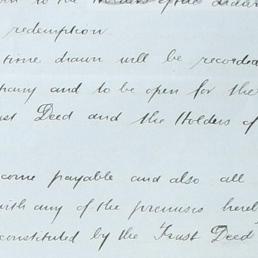 to the Holders of the
redemption
time drawn will be recorded
and to be open for the
Deed and the Holders of
come payable and also all
with any of the premises
constituted by the Trust Deed